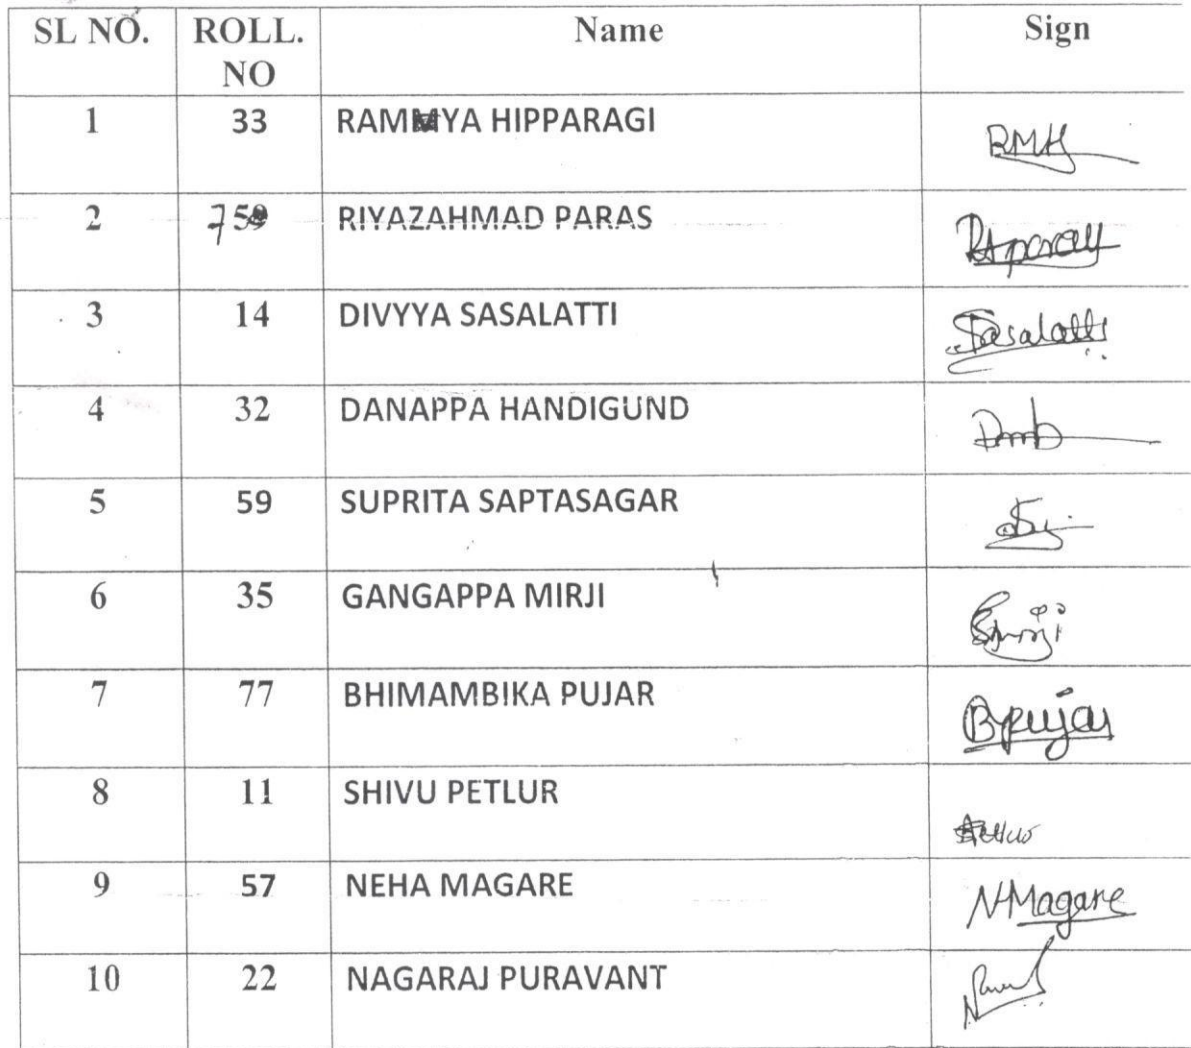 SL NO. ROLL. NO Name Sign
1 33 RAMMYA HIPPARAGI RMH
2 75 RIYAZAHMAD PARAS RAparas
3 14 DIVYYA SASALATTI Sasalatti
4 32 DANAPPA HANDIGUND
5 59 SUPRITA SAPTASAGAR
6 35 GANGAPPA MIRJI Gmirji
7 77 BHIMAMBIKA PUJAR Bpujar
8 11 SHIVU PETLUR
9 57 NEHA MAGARE NMagare
10 22 NAGARAJ PURAVANT